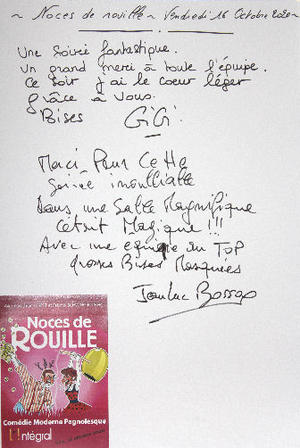 ~ Noces de rouille ~ Vendredi 16 Octobre 2020 ~
Une soirée fantastique.
Un grand merci à toute l'équipe.
Ce soir j'ai le coeur léger
grâce à vous.
Bises GiGi
Merci Pour Cette
Soirée inoubliable
Dans une Salle Magnifique
C'était Magique !!!
Avec une equipe au Top
Grosses Bises Masquées
Jean Luc
Noces de
ROUILLE
Comédie Moderne Pagnolesque
L'intégral